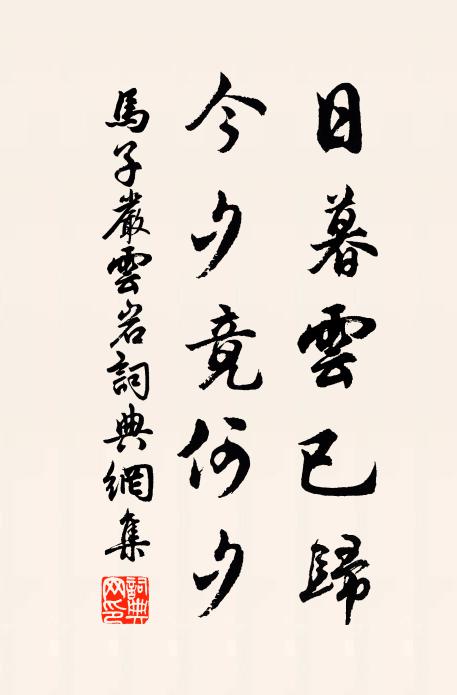 日暮雲已歸
今夕竟何夕
馬子嚴雲岩詞典網集
詞典網印